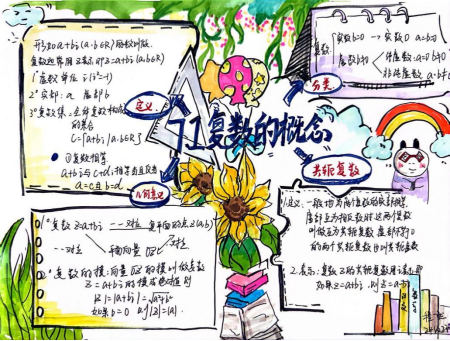 7.1 复数的概念
定义
形如a+bi(a,b∈R)的数叫做
复数通常用z表示,即z=a+bi(a,b∈R)
1°虚数单位 i(i²=-1)
2°实部:a 虚部b
3°复数集:全体复数构成
的集合
C={a+bi|a,b∈R}
①复数相等
a+bi与c+di相等当且仅当
a=c且b=d
分类
复数
实数b=0 → 实数0 a=b=0
虚数b≠0
纯虚数:a=0 b≠0
非纯虚数 a·b≠0
几何意义
1°复数z=a+bi 一一对应 复平面的点Z(a,b)
一一对应 平面向量OZ 一一对应
2°复数的模:向量OZ的模叫做复数
z=a+bi的模或绝对值 即
|z|=|a+bi|=√a²+b²
如果b=0 则|z|=|a|.
共轭复数
1.定义:一般地,当两个复数的实部相等
虚部互为相反数时,这两个复数
叫做互为共轭复数 虚部不等于0
的两个共轭复数也叫共轭虚数
2.表示:复数z的共轭复数用z̄表示,即
如果z=a+bi,则z̄=a-bi